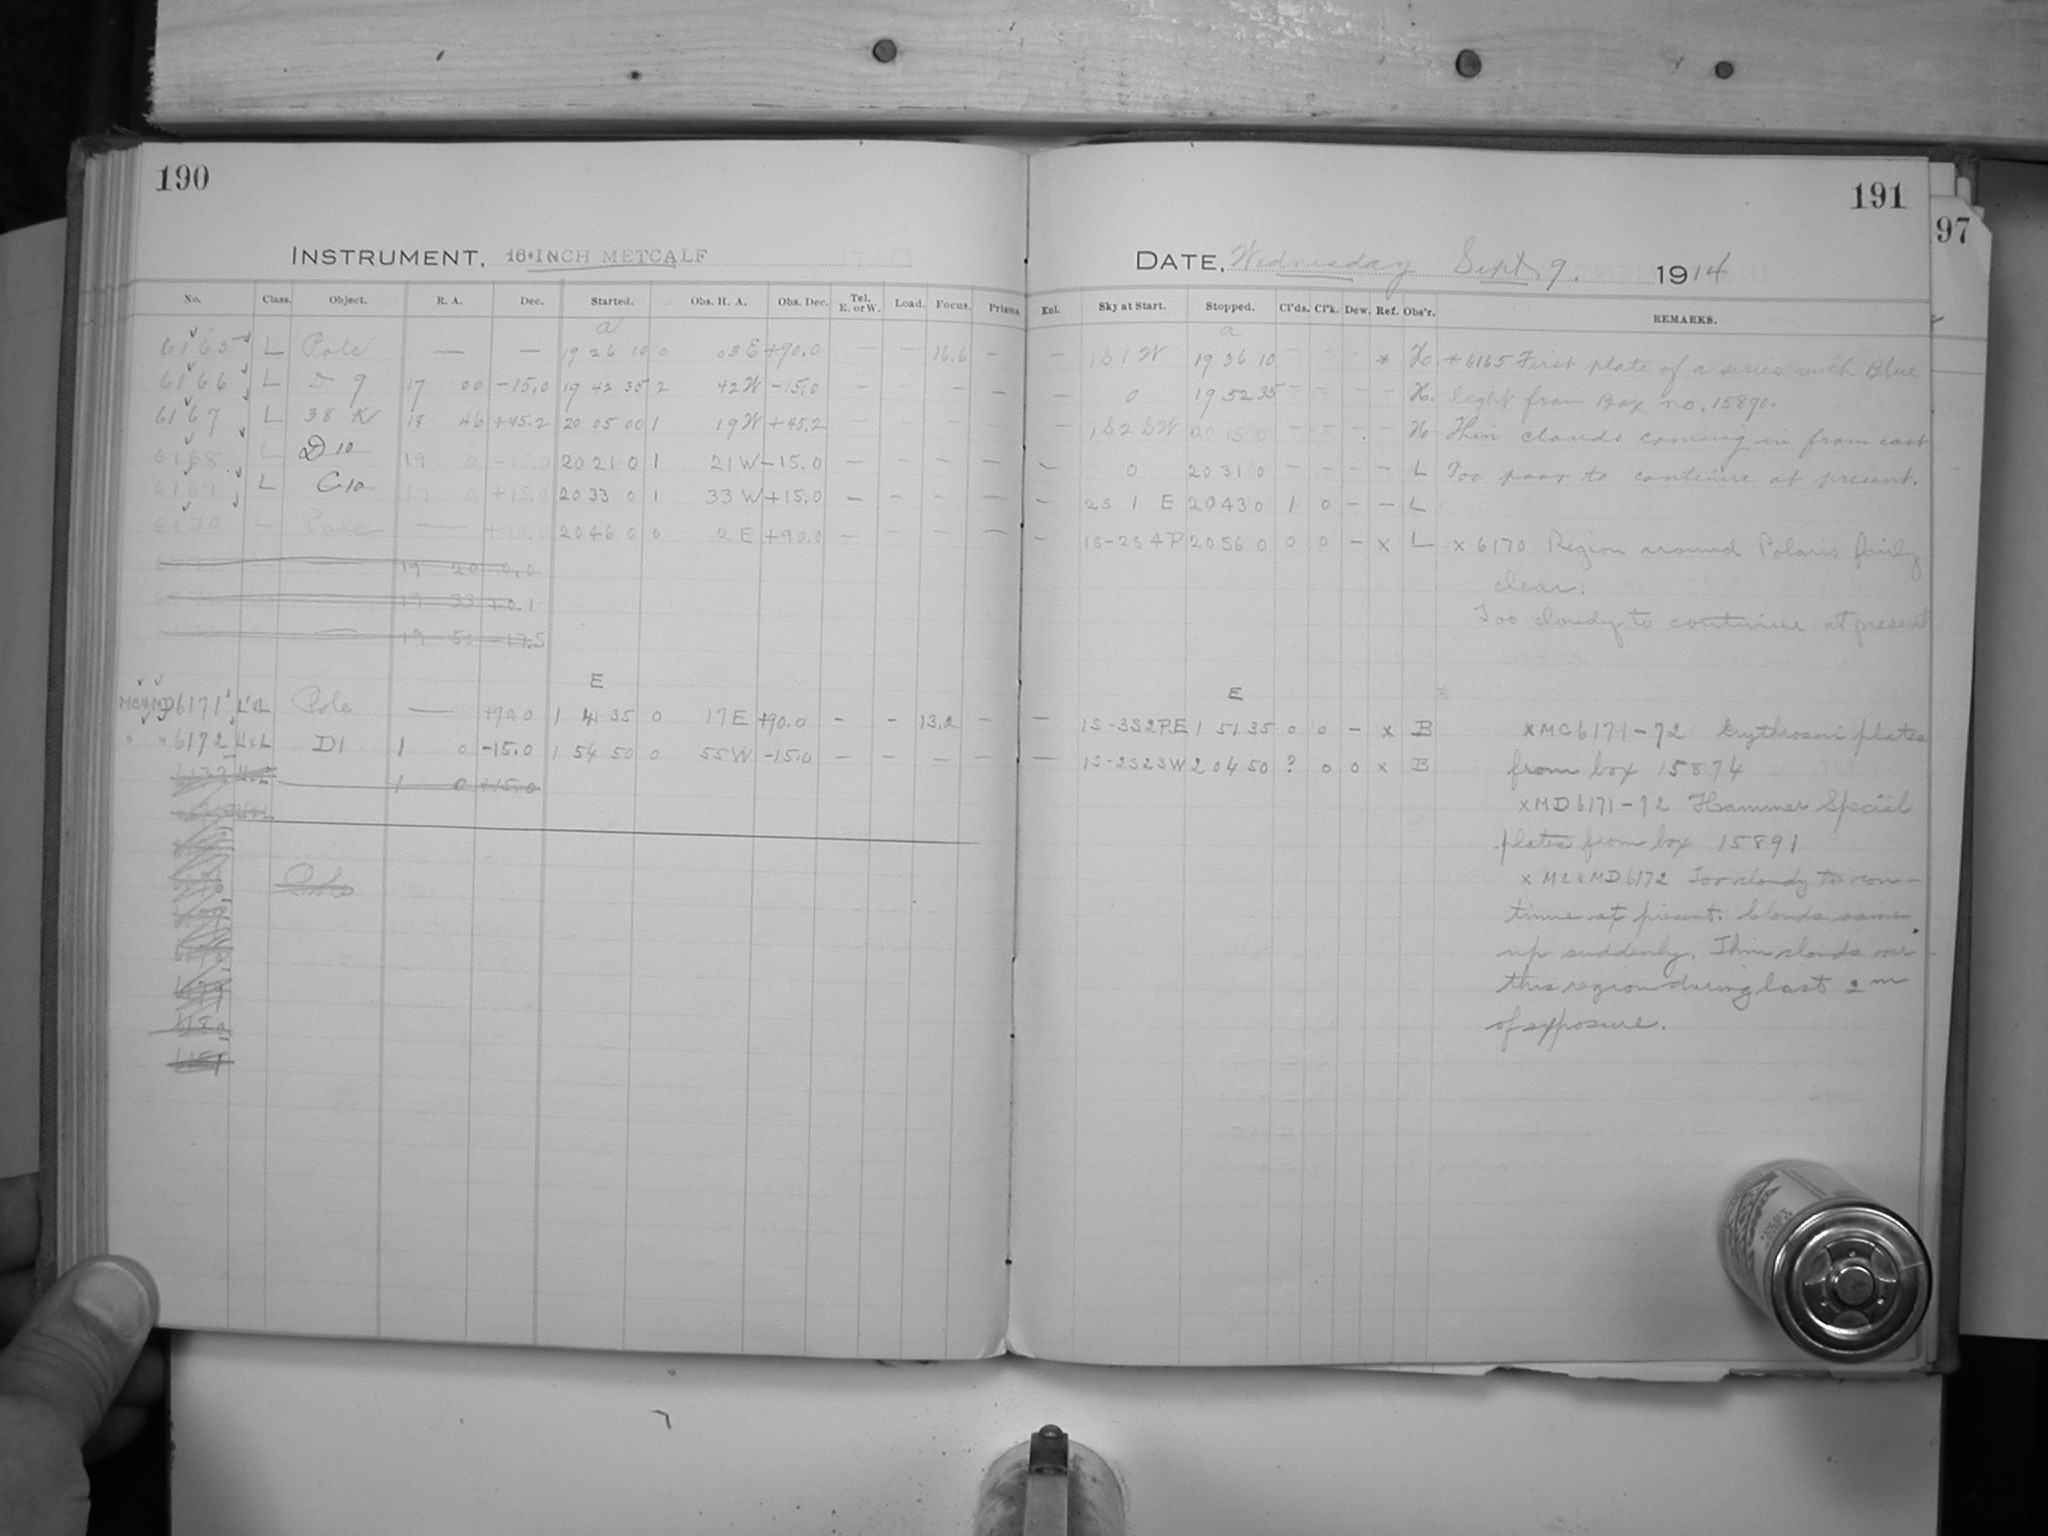 190
INSTRUMENT, 16-INCH METCALF
No. Class. Object. R. A. Dec. Started. Obs. H. A. Obs. Dec. Tel. E. or W. Load. Focus. Prisms.
a
6165 L Pole — — 19 26 10 0 03 E +90.0 — — 16.6 —
6166 L D 9 17 00 -15.0 19 42 35 2 42 W -15.0 — — — —
6167 L 38 K 18 46 +45.2 20 05 00 1 19 W +45.2 — — — —
6168 L D 10 19 0 -15.0 20 21 0 1 21 W -15.0 — — — —
6169 L C 10 19 0 +15.0 20 33 0 1 33 W +15.0 — — — —
6170 L Pole — +90.0 20 46 0 0 2 E +90.0 — — — —
19 20 0.0
19 33 +0.1
19 50 -17.5
E
MC & MD 6171 L&L Pole — +90.0 1 41 35 0 17 E +90.0 — — 13.2 —
" " 6172 L&L D1 1 0 -15.0 1 54 50 0 55 W -15.0 — — — —
1 0 +15.0
Pole
191
97
DATE, Wednesday Sept 9. 1914
Enl. Sky at Start. Stopped. Cl'ds. Cl'k. Dew. Ref. Obs'r. REMARKS.
a
— 1S 1 W 19 36 10 — — — * H. * 6165 First plate of a series with Blue
— 0 19 52 35 — — — — H. light from Box no. 15890.
1S 2 SW 20 15 0 — — — — H Thin clouds coming in from east
— 0 20 31 0 — — — — L Too poor to continue at present.
— 2S 1 E 20 43 0 1 0 — — L
— 1S-2S 4 P 20 56 0 0 0 — x L x 6170 Region around Polaris fairly
clear.
Too cloudy to continue at present
E
— 1S-3S 2 P.E 1 51 35 0 0 — x B x MC 6171-72 Erythrosin plates
— 1S-2S 2 SW 2 04 50 ? 0 0 x B from box 15874
x MD 6171-72 Hammer Special
plates from box 15891
x MC & MD 6172 Too cloudy to con-
tinue at present. Clouds came
up suddenly. Thin clouds over
this region during last 2 m
of exposure.